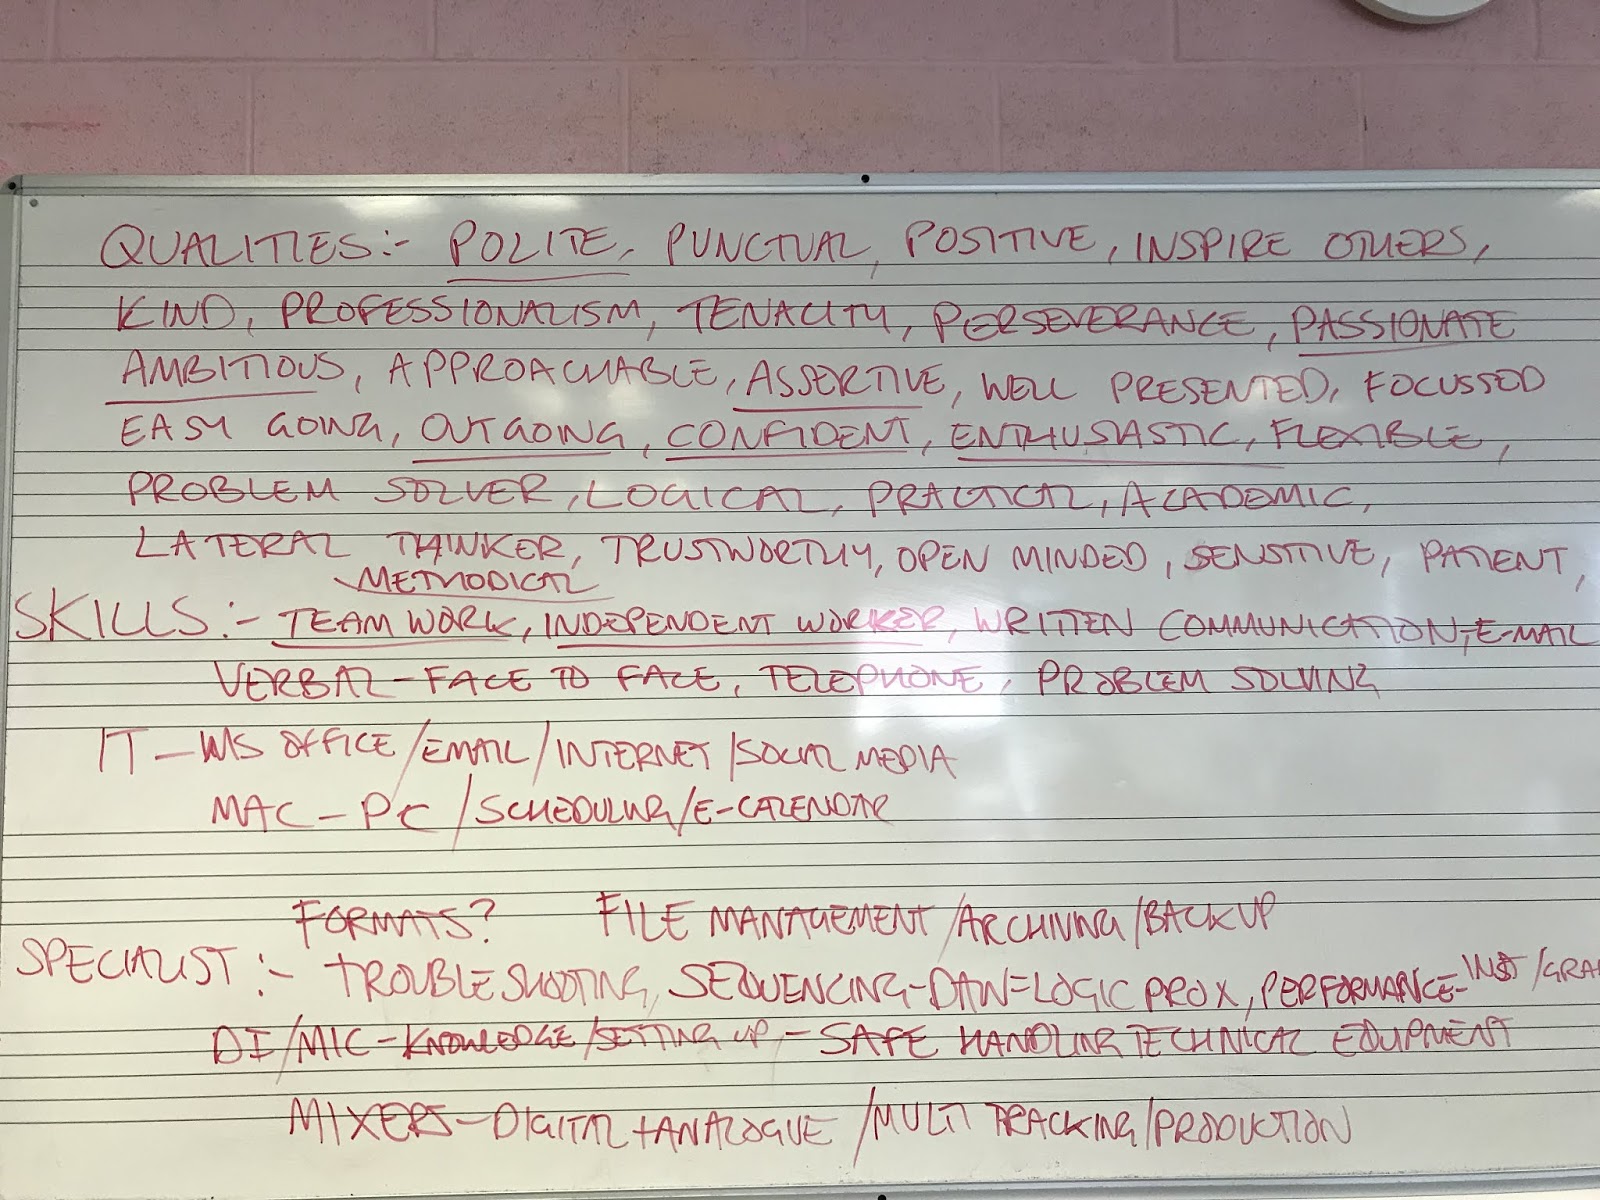 QUALITIES:- POLITE, PUNCTUAL, POSITIVE, INSPIRE OTHERS,
KIND, PROFESSIONALISM, TENACITY, PERSEVERANCE, PASSIONATE
AMBITIOUS, APPROACHABLE, ASSERTIVE, WELL PRESENTED, FOCUSSED
EASY GOING, OUTGOING, CONFIDENT, ENTHUSIASTIC, FLEXIBLE,
PROBLEM SOLVER, LOGICAL, PRACTICAL, ACADEMIC,
LATERAL THINKER, TRUSTWORTHY, OPEN MINDED, SENSITIVE, PATIENT,
METHODICAL
SKILLS:- TEAM WORK, INDEPENDENT WORKER, WRITTEN COMMUNICATION, E-MAIL
VERBAL - FACE TO FACE, TELEPHONE, PROBLEM SOLVING
IT - MS OFFICE/EMAIL/INTERNET/SOCIAL MEDIA
MAC - PC/SCHEDULING/E-CALENDAR
FORMATS? FILE MANAGEMENT/ARCHIVING/BACKUP
SPECIALIST:- TROUBLESHOOTING, SEQUENCING-DAW=LOGIC PRO X, PERFORMANCE-INST/GRA
DI/MIC-KNOWLEDGE/SETTING UP,-SAFE HANDLING TECHNICAL EQUIPMENT
MIXERS-DIGITAL+ANALOGUE/MULTI TRACKING/PRODUCTION